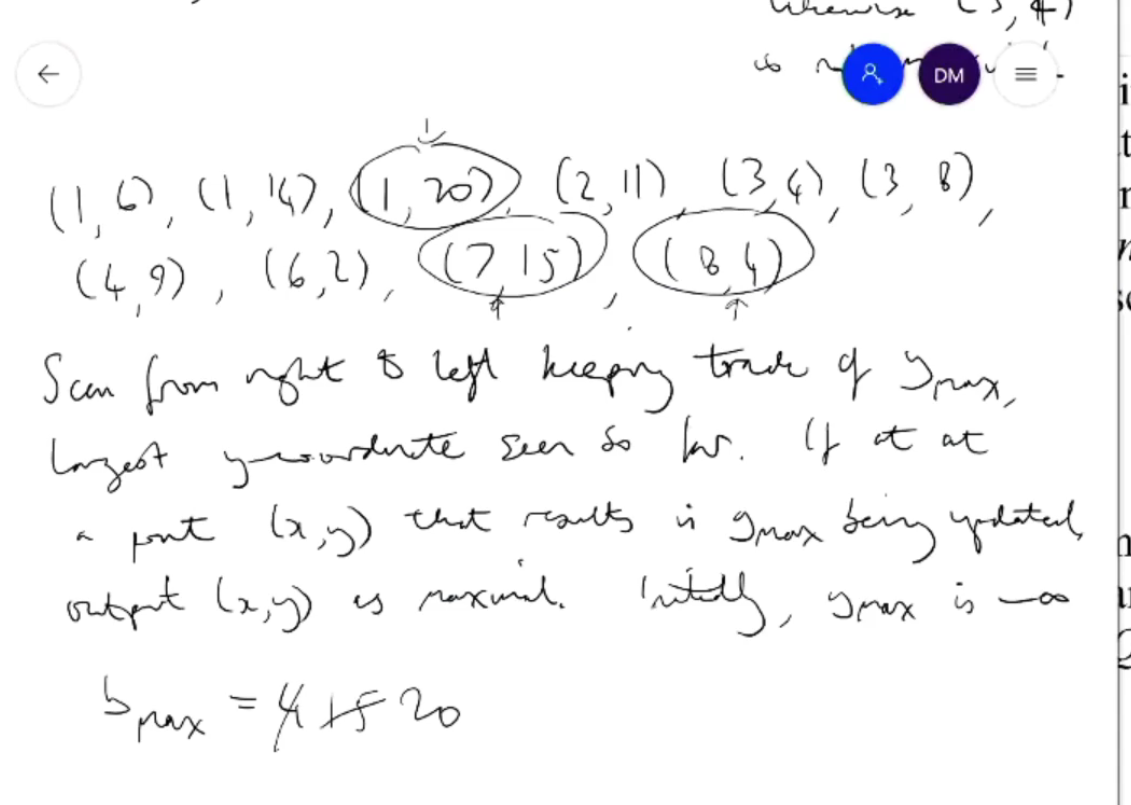 likewise (3, 4)
is
DM
(1, 6), (1, 14), (1, 20), (2, 11), (3, 4), (3, 8),
(4, 9), (6, 2), (7, 15), (8, 4)
Scan from right to left keeping track of ymax,
largest y-coordinate seen so far. If at at
a point (x, y) that results in ymax being updated,
output (x, y) as maximal. Initially, ymax is -∞
ymax = 4 15 20